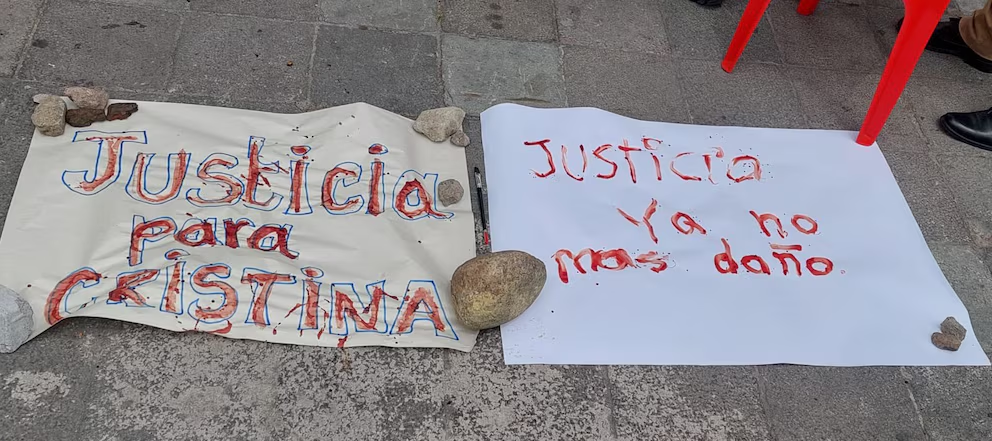 Justicia
para
CRISTINA
Justicia
Ya no
mas daño.